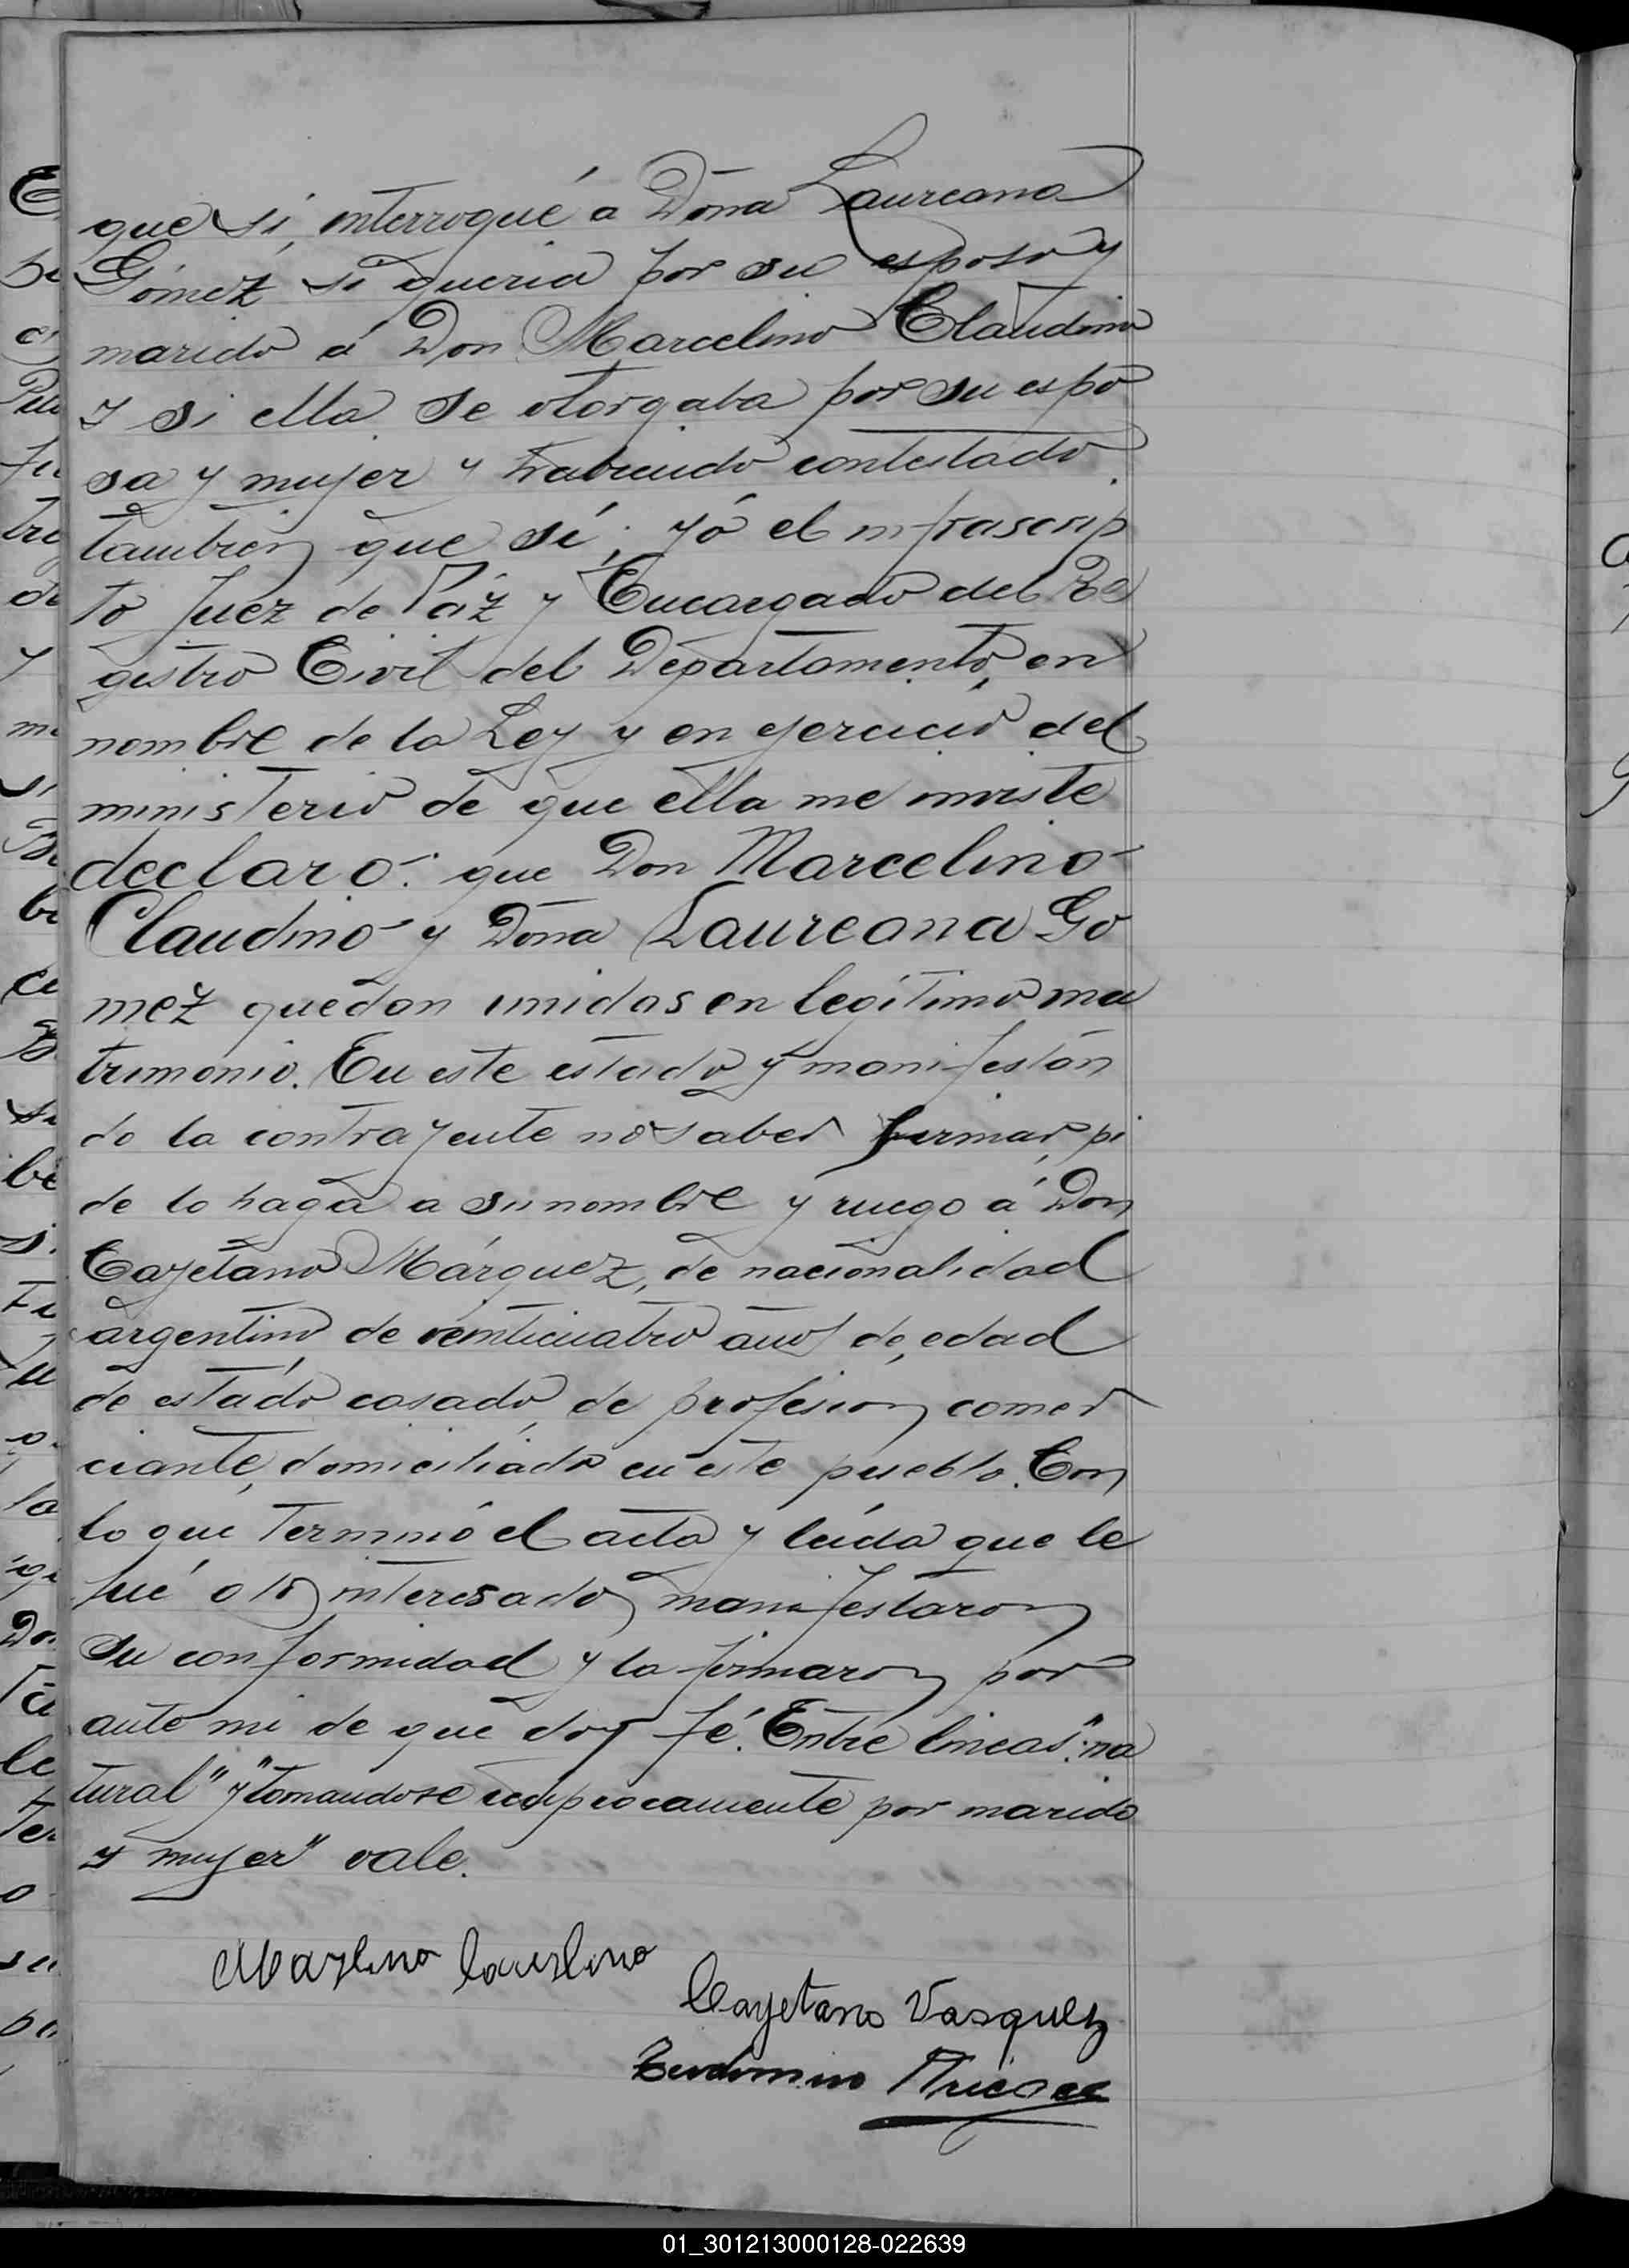 que sí, interrogué a Doña Laureana
Gómez si queria por su esposo y
marido á Don Marcelino Claudino
y si ella se otorgaba por su espo
sa y mujer y habiendo contestado
tambien que sí; yó el infrascrip
to Juez de Páz y Encargado del Re
gistro Civil del Departamento, en
nombre de la Ley y en ejercicio del
ministerio de que ella me inviste
declaro: que Don Marcelino
Claudino y Doña Laureana Go
mez quedan unidos en legítimo ma
trimonio. En este estado y manifestan
do la contrayente no saber firmar, pi
de lo haga a su nombre y ruego á Don
Cayetano Márquez, de nacionalidad
argentino, de veinticuatro años de edad,
de estado casado, de profesion comer
ciante, domiciliado en este pueblo. Con
lo que terminó el acta y leida que le
fué a los interesados manifestaron
su conformidad y la firmaron por
ante mi de que doy fé. Entre lineas: "na
tural" y "tomandose reciprocamente por marido
y mujer" vale.
Cayetano Vasquez
01_301213000128-022639